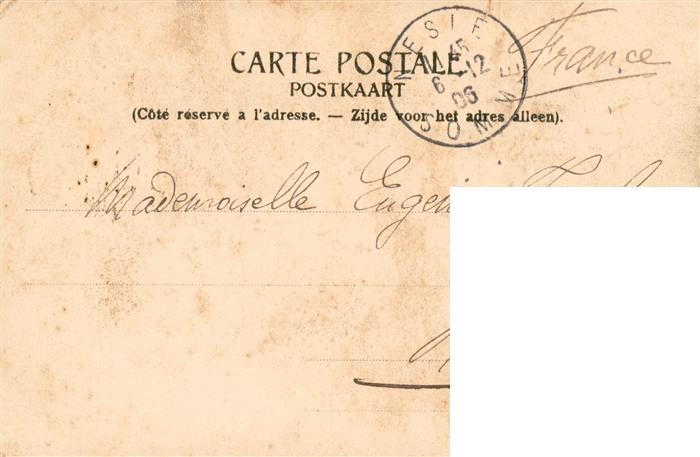 France
NESLE
15
6 - 12
06
SOMME
CARTE POSTALE
POSTKAART
(Côté réservé a l'adresse. — Zijde voor het adres alleen).
Mademoiselle